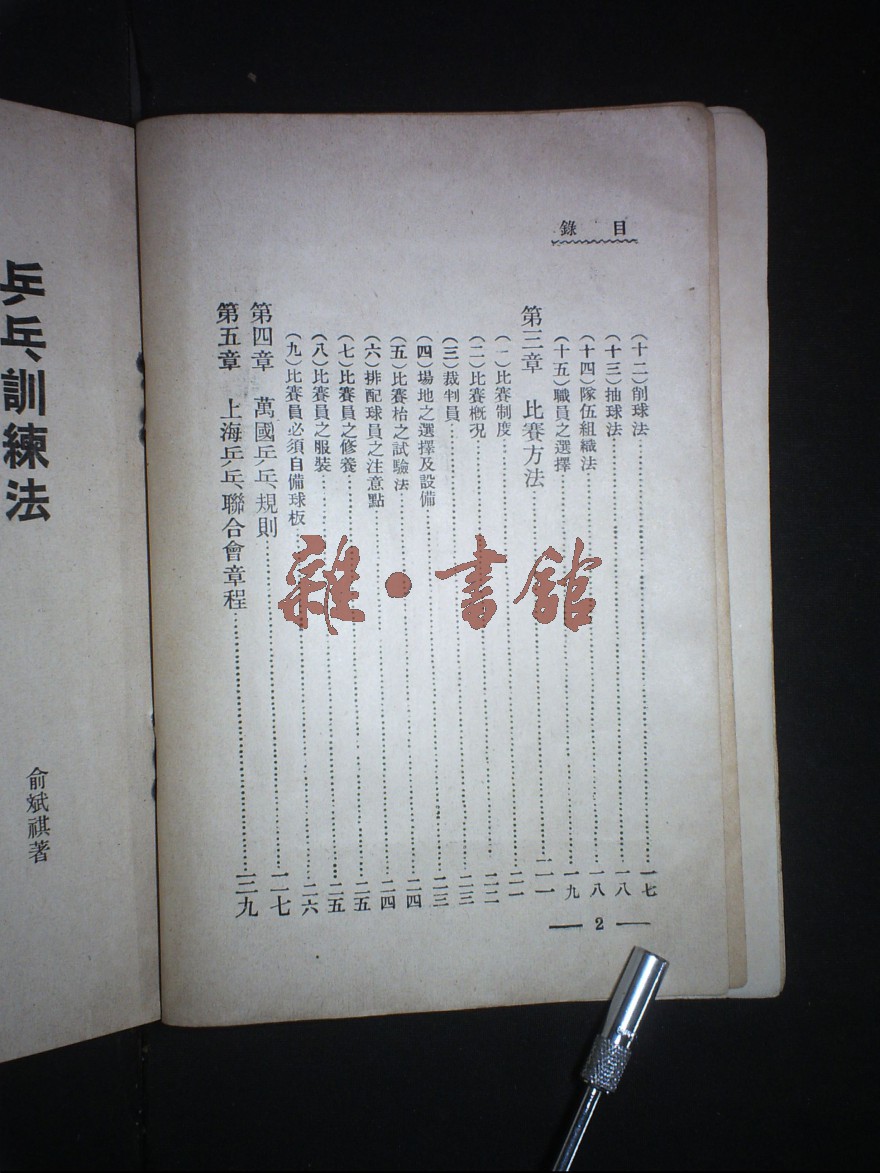 目錄
(十二)削球法……一七
(十三)抽球法……一八
(十四)隊伍組織法……一八
(十五)職員之選擇……一九
第三章 比賽方法……二一
(一)比賽制度……二一
(二)比賽概況……二二
(三)裁判員……二三
(四)場地之選擇及設備……二三
(五)比賽枱之試驗法……二四
(六)排配球員之注意點……二四
(七)比賽員之修養……二五
(八)比賽員之服裝……二五
(九)比賽員必須自備球板……二六
第四章 萬國乒乓規則……二七
第五章 上海乒乓聯合會章程……三九
— 2 —
乒乓訓練法
俞斌祺著
雜·書館